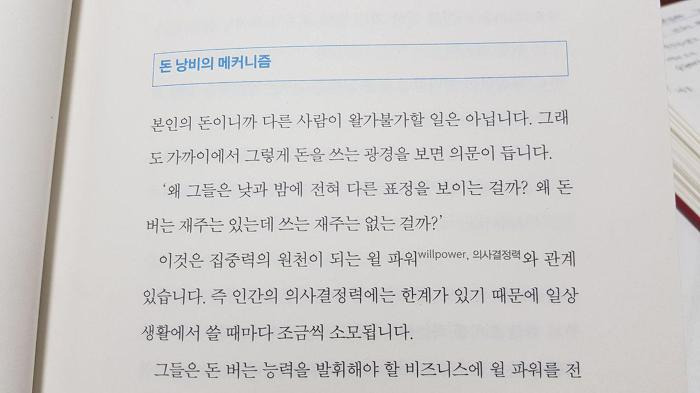 돈 낭비의 메커니즘
본인의 돈이니까 다른 사람이 왈가불가할 일은 아닙니다. 그래
도 가까이에서 그렇게 돈을 쓰는 광경을 보면 의문이 듭니다.
‘왜 그들은 낮과 밤에 전혀 다른 표정을 보이는 걸까? 왜 돈
버는 재주는 있는데 쓰는 재주는 없는 걸까?’
이것은 집중력의 원천이 되는 윌 파워willpower, 의사결정력와 관계
있습니다. 즉 인간의 의사결정력에는 한계가 있기 때문에 일상
생활에서 쓸 때마다 조금씩 소모됩니다.
그들은 돈 버는 능력을 발휘해야 할 비즈니스에 윌 파워를 전